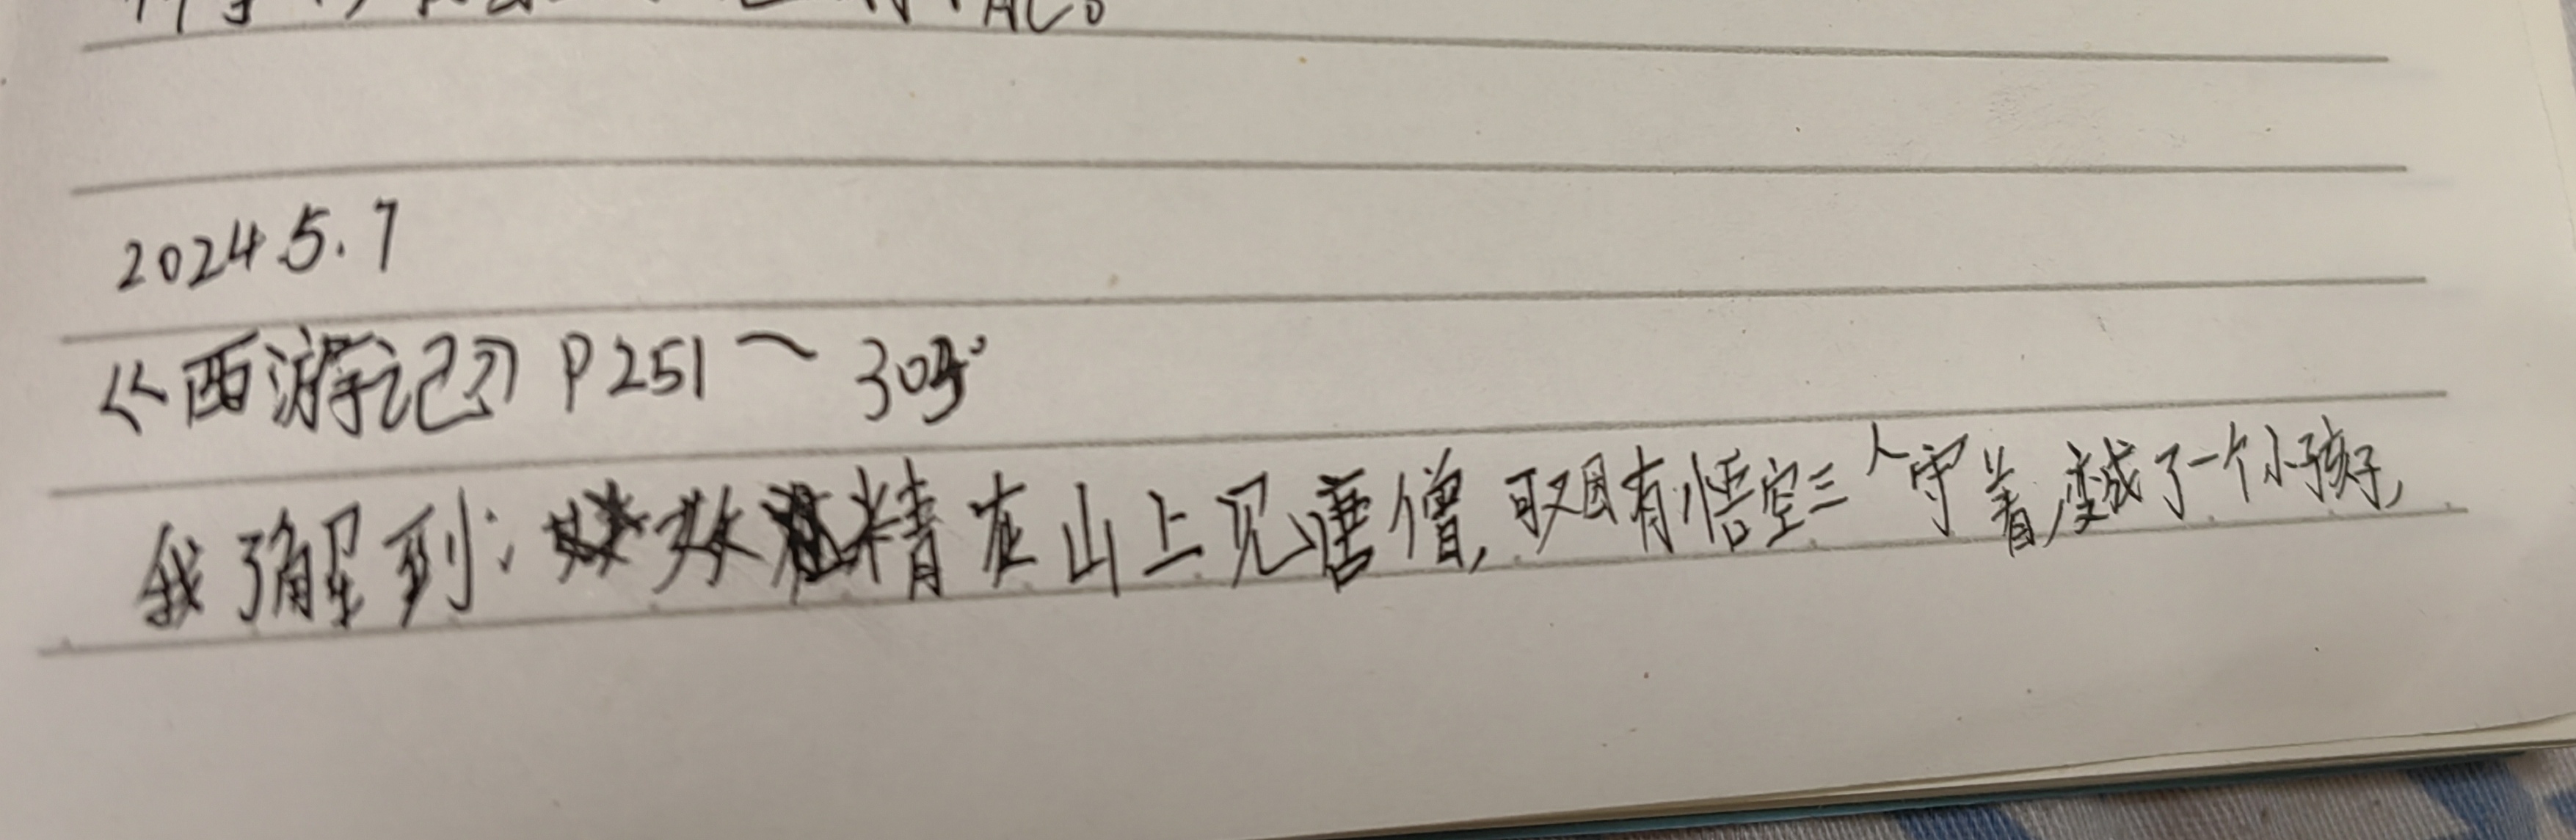 2024.5.7
《西游记》P251～30
我了解到：妖精在山上见唐僧,取因有悟空三人守着,变成了一个小孩子,